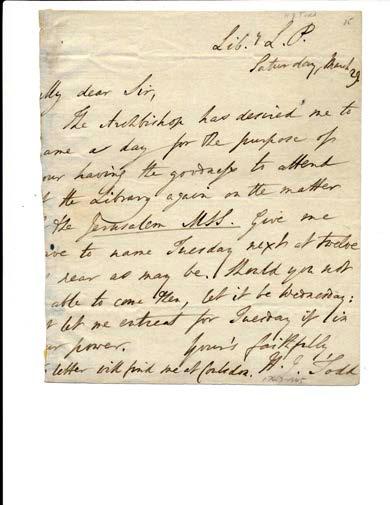 H. J. Todd
Lib.y L. P.
Saturday, March 29
My dear Sir,
The Archbishop has desired me to
ame a day for the purpose of
our having the goodness to attend
t the Library again on the matter
the Jerusalem MSS. Give me
ave to name Tuesday next at twelve
near as may be. Should you not
able to come then, let it be Wednesday:
t let me entreat for Tuesday if in
ur power. Your's faithfully
letter will find me at Coulsdon. H. J. Todd